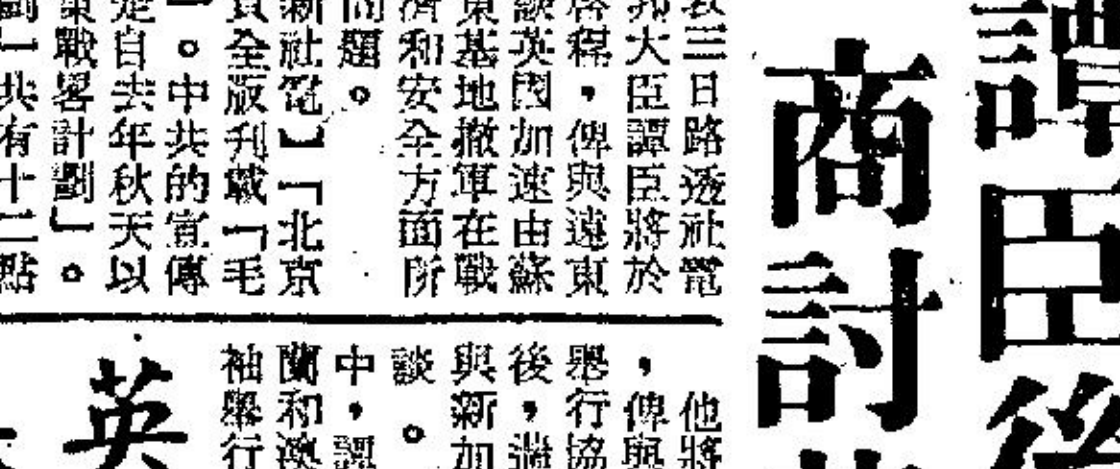 譚臣後
商討
敦三日路透社電
邦大臣譚臣將於
啓程，俾與遠東
談英國加速由蘇
東基地撤軍在戰
濟和安全方面所
問題。
新社電】「北京
全版刊載「毛
。中共的宣傳
是自去年秋天以
策戰畧計劃」。
劃一共有十二點
他將
，俾與
舉行協
後，遄
與新加
談。
中，譚
蘭和澳
袖舉行
英